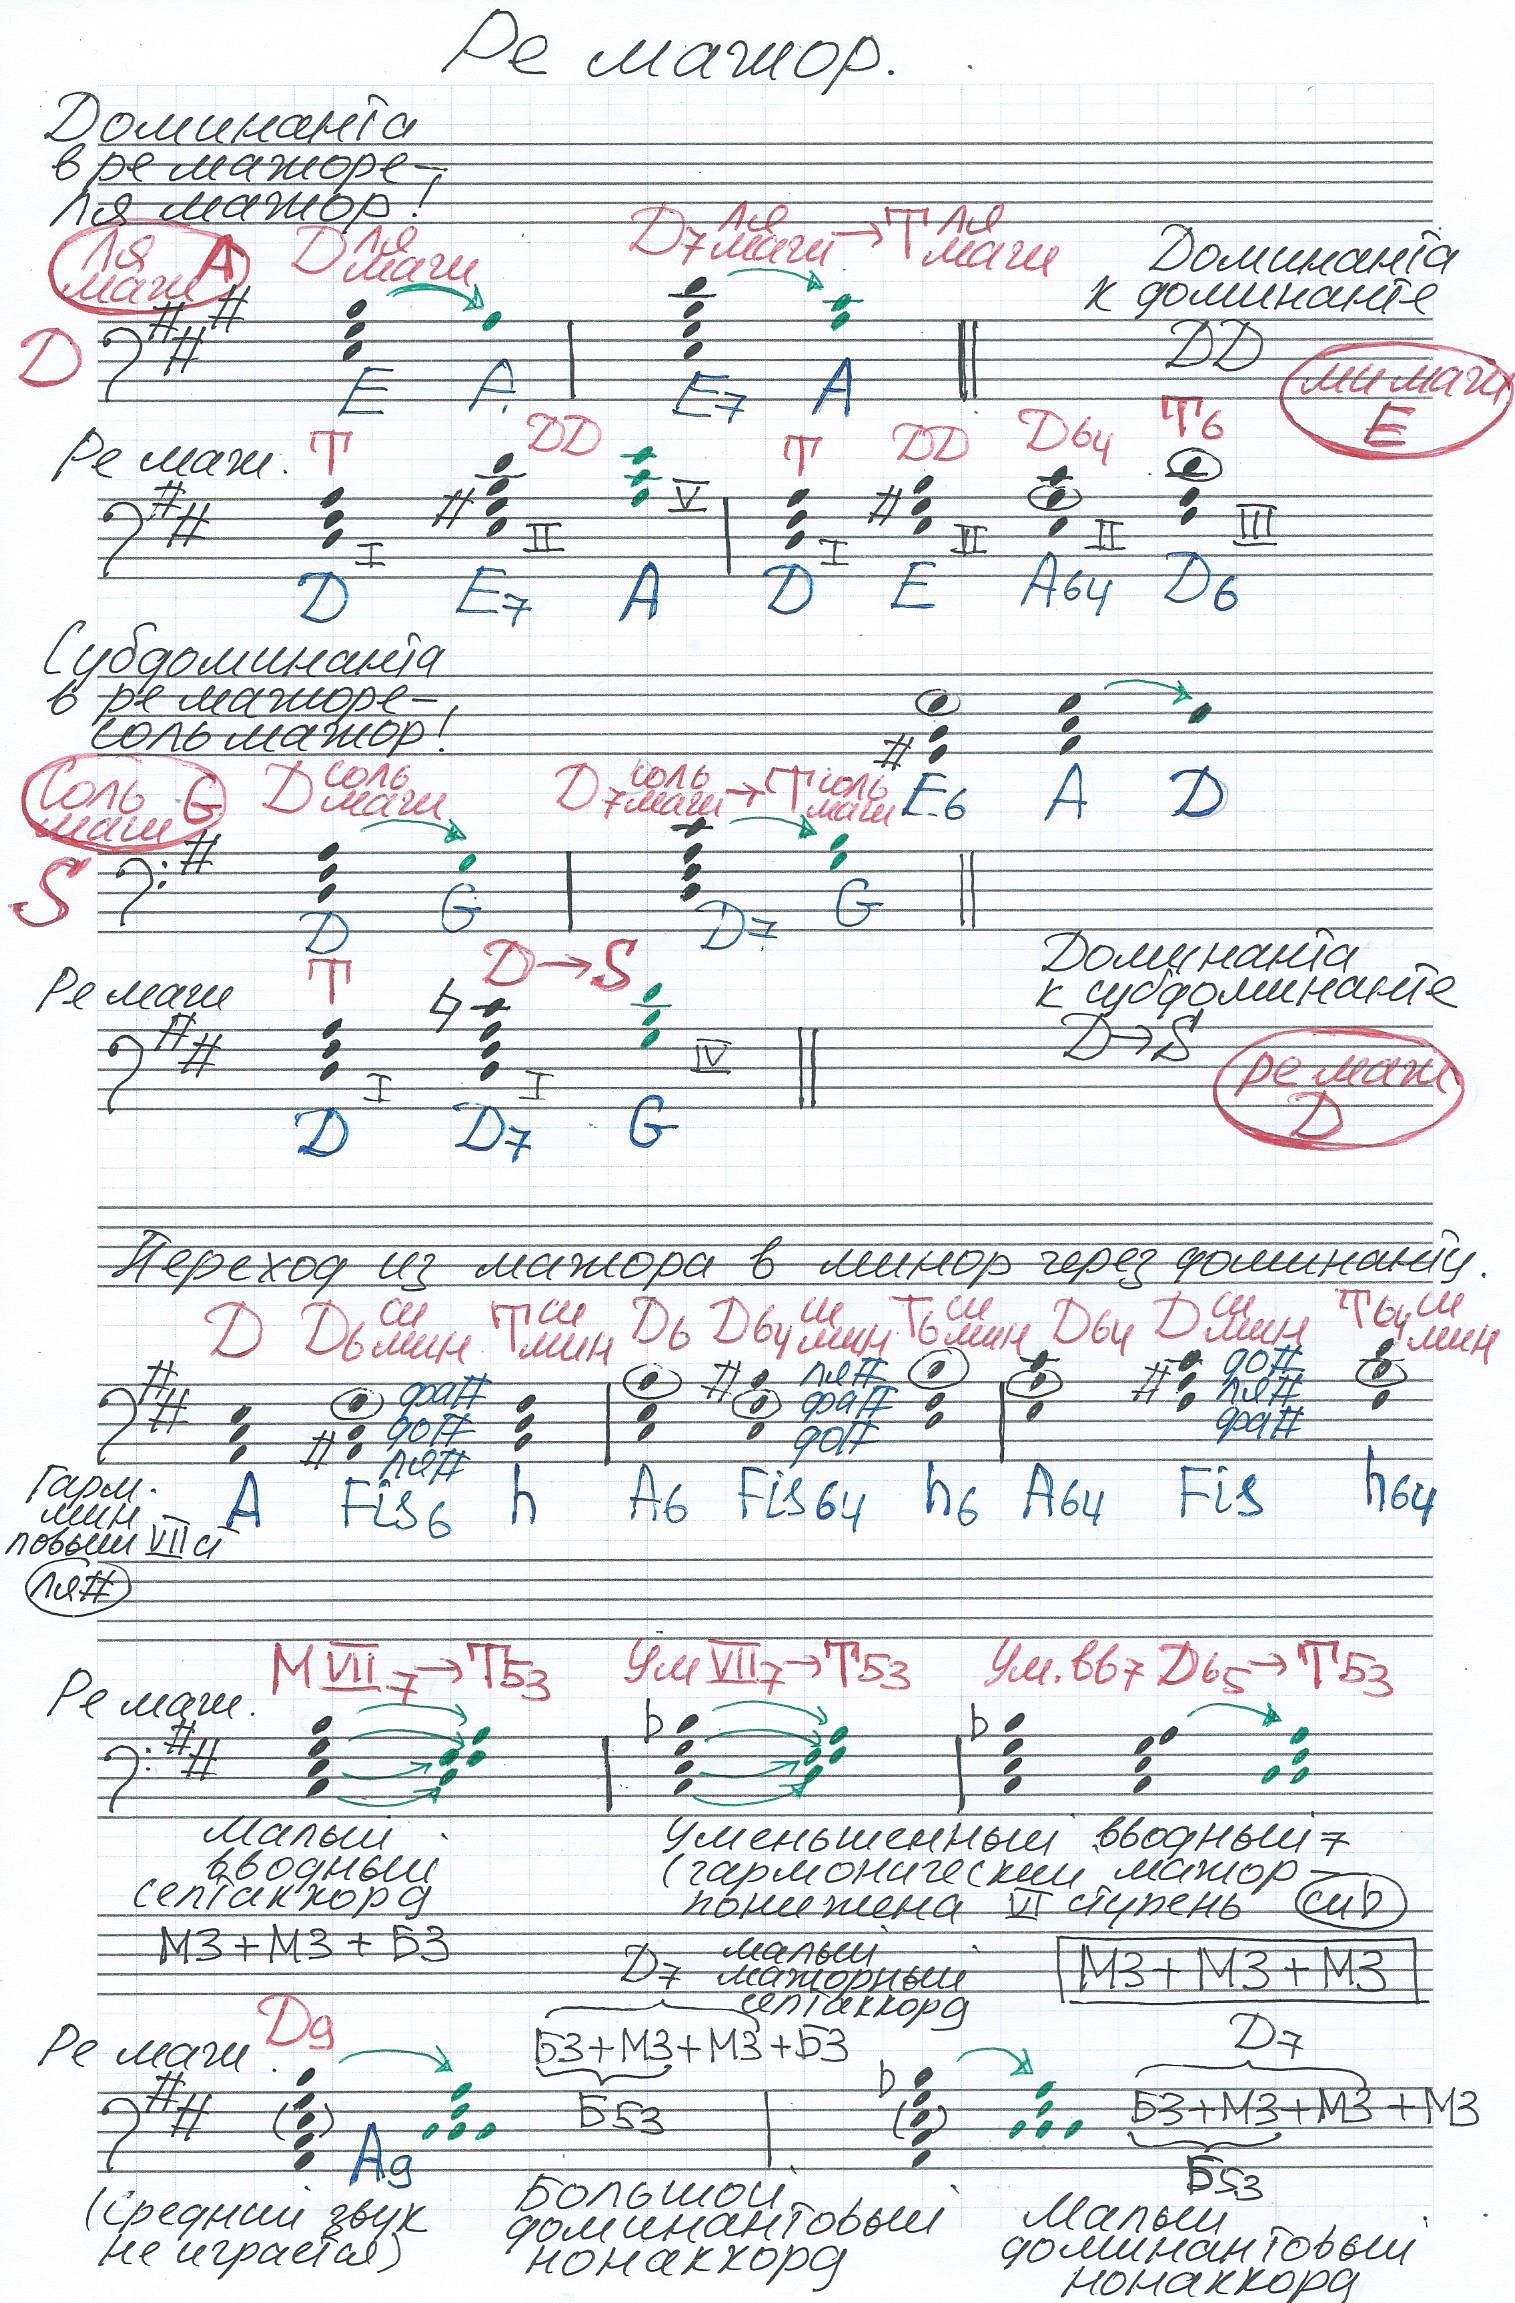 Ре мажор.
Доминанта
в ре мажоре–
ля мажор!
ля маж A
D ля маж
D7 ля маж → Т ля маж
Доминанта
к доминанте
DD
ми маж
E
D
E A E7 A
Ре маж. T DD T DD D64 T6
I II V I II II III
D E7 A D E A64 D6
Субдоминанта
в ре мажоре–
соль мажор!
E6 A D
Соль маж G
D соль маж
D7 соль маж → T соль маж
S
D G D7 G
Доминанта
к субдоминанте
D→S
ре маж
D
Ре маж T D→S
I I IV
D D7 G
Переход из мажора в минор через доминанту.
D D6 си мин T си мин D6 D64 си мин T6 си мин D64 D си мин T64 си мин
фа# ля# до#
до# фа# ля#
ля# до# фа#
A Fis6 h A6 Fis64 h6 A64 Fis h64
Гарм.
мин
повыш VII ст
ля#
М VII7 → Т53 Ум VII7 → Т53 Ум. вв7 D65 → Т53
Ре маж.
Малый
вводный
септаккорд
М3 + М3 + Б3
Уменьшенный вводный 7
(гармонический мажор –
понижена VI ступень сиb
М3 + М3 + М3
D7 малый
мажорный
септаккорд
Б3 + М3 + М3 + Б3
Б53
Ре маж. D9
A9
D7
Б3 + М3 + М3 + М3
Б53
(Средний звук
не играется)
Большой
доминантовый
нонаккорд
Малый
доминантовый
нонаккорд